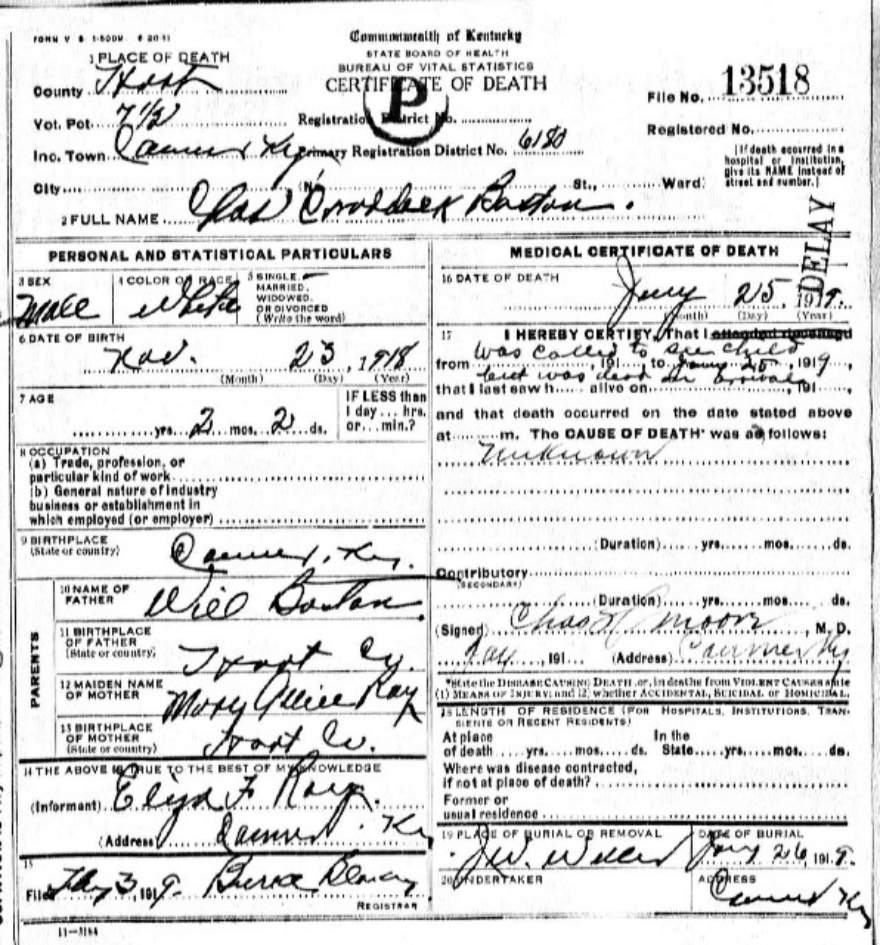 FORM V S 1-500M 6 20 11
Commonwealth of Kentucky
STATE BOARD OF HEALTH
BUREAU OF VITAL STATISTICS
CERTIFICATE OF DEATH
P
1 PLACE OF DEATH
County Hart
Vot. Pct. 7 1/2
Inc. Town Ky
City
Registration District No.
Primary Registration District No. 6180
(No. St., Ward)
File No. 13518
Registered No.
[If death occurred in a
hospital or institution,
give its NAME instead of
street and number.]
2 FULL NAME Chas Boston
DELAY
PERSONAL AND STATISTICAL PARTICULARS
3 SEX
Male
4 COLOR OR RACE
White
5 SINGLE,
MARRIED,
WIDOWED,
OR DIVORCED
(Write the word)
6 DATE OF BIRTH
Nov. 23, 1918
(Month) (Day) (Year)
7 AGE
yrs. 2 mos. 2 ds.
IF LESS than
1 day... hrs.
or... min.?
8 OCCUPATION
(a) Trade, profession, or
particular kind of work
(b) General nature of industry
business or establishment in
which employed (or employer)
9 BIRTHPLACE
(State or country)
Ky.
PARENTS
10 NAME OF
FATHER
Will Boston
11 BIRTHPLACE
OF FATHER
(State or country)
Hart Co.
12 MAIDEN NAME
OF MOTHER
Mary Ray
13 BIRTHPLACE
OF MOTHER
(State or country)
Hart Co.
14 THE ABOVE IS TRUE TO THE BEST OF MY KNOWLEDGE
(Informant) F Ray
(Address) Ky
15
Filed 3, 1919
REGISTRAR
11-3184
MEDICAL CERTIFICATE OF DEATH
16 DATE OF DEATH
Jany 25, 1919.
(Month) (Day) (Year)
17 I HEREBY CERTIFY, That I attended deceased
was called to see child
from, 191 to Jany 25, 1919
but was dead on arrival
that I last saw h alive on, 191
and that death occurred on the date stated above
at m. The CAUSE OF DEATH* was as follows:
Unknown
(Duration) yrs. mos. ds.
Contributory
(SECONDARY)
(Duration) yrs. mos. ds.
(Signed) Chas Moore, M. D.
, 191 (Address) Ky
*State the DISEASE CAUSING DEATH, or, in deaths from VIOLENT CAUSES state
(1) MEANS OF INJURY; and (2) whether ACCIDENTAL, SUICIDAL or HOMICIDAL.
18 LENGTH OF RESIDENCE (FOR HOSPITALS, INSTITUTIONS, TRAN-
SIENTS OR RECENT RESIDENTS)
At place
of death yrs. mos. ds.
In the
State yrs. mos. ds.
Where was disease contracted,
if not at place of death?
Former or
usual residence
19 PLACE OF BURIAL OR REMOVAL
DATE OF BURIAL
J.W.
Jany 26, 1919.
20 UNDERTAKER
ADDRESS
Ky